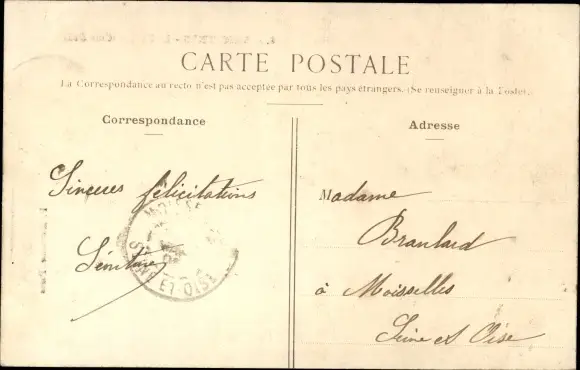 CARTE POSTALE
La Correspondance au recto n'est pas acceptée par tous les pays étrangers. (Se renseigner à la Poste).
Correspondance
Adresse
Sincères félicitations
Madame
Braulard
à Moisselles
Seine et Oise
ET OISE